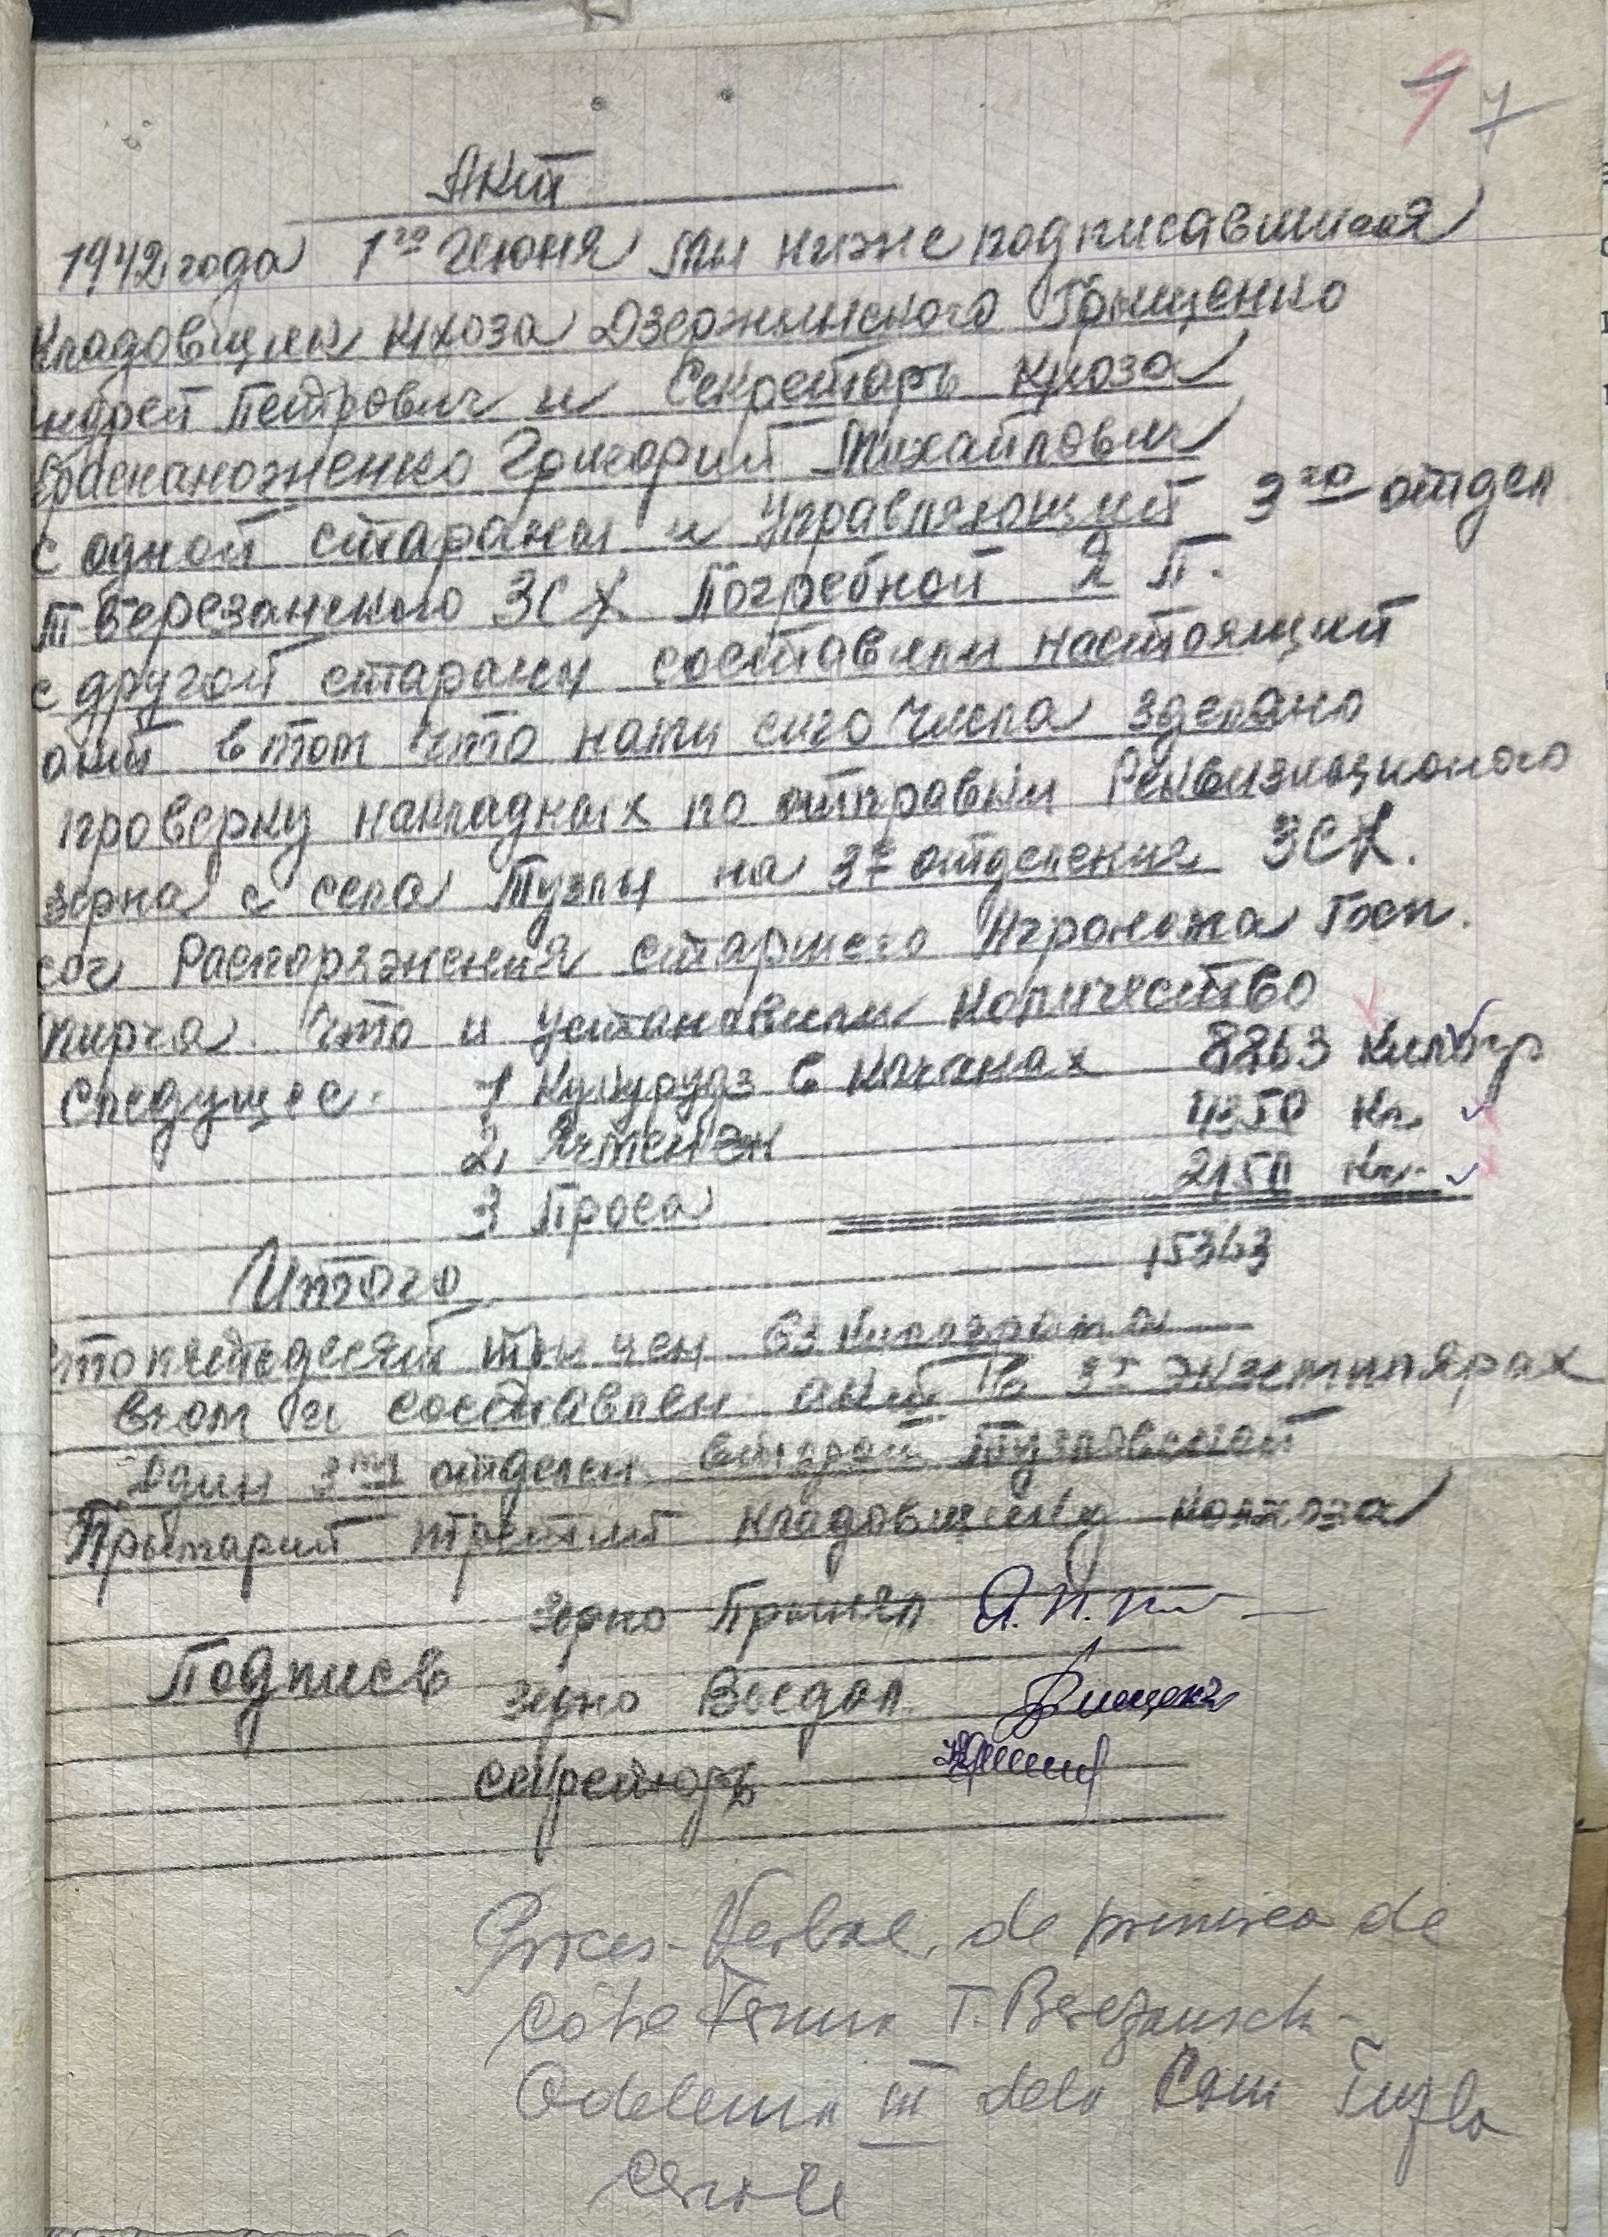 1 7
Акт
1942 года 1го Июня Мы ниже подписавшиися
Кладовщик К/хоза Дзержинского Грищенко
Андрей Петрович и Секретарь К/хоза
Красканоженко Григорий Михайлович
с одной стараны и Управляющий 3го отдел
Т-Березанского ЗСХ Погребной Я П.
с другой стараны составили настоящий
акт в том что нами сиго числа зделано
проверку накладных по отправки Реквизиционого
зерна с села Тузлы на 3е отделение ЗСХ.
сог Распоряжения старшего Агронома Госп.
Что и установили Количество
следущее. 1 Кукурудз в качанах 8863 Килогр
2, Ячмень 4350 Кг.
3 Проса 2150 Кг.
Итого 15363
стопятьдесят три цен 63 килограма
вком и составлен акт в 3х экземплярах
Один 3му отделен. второй Тузловской
Прымарии третий кладовщику колхоза
зерно Принял
Подписв зерно Выдал.
секретарь
Proces-Verbal, de primirea de
către Ferma T. Berezansch-
Odelenia III dela Com Tuzla